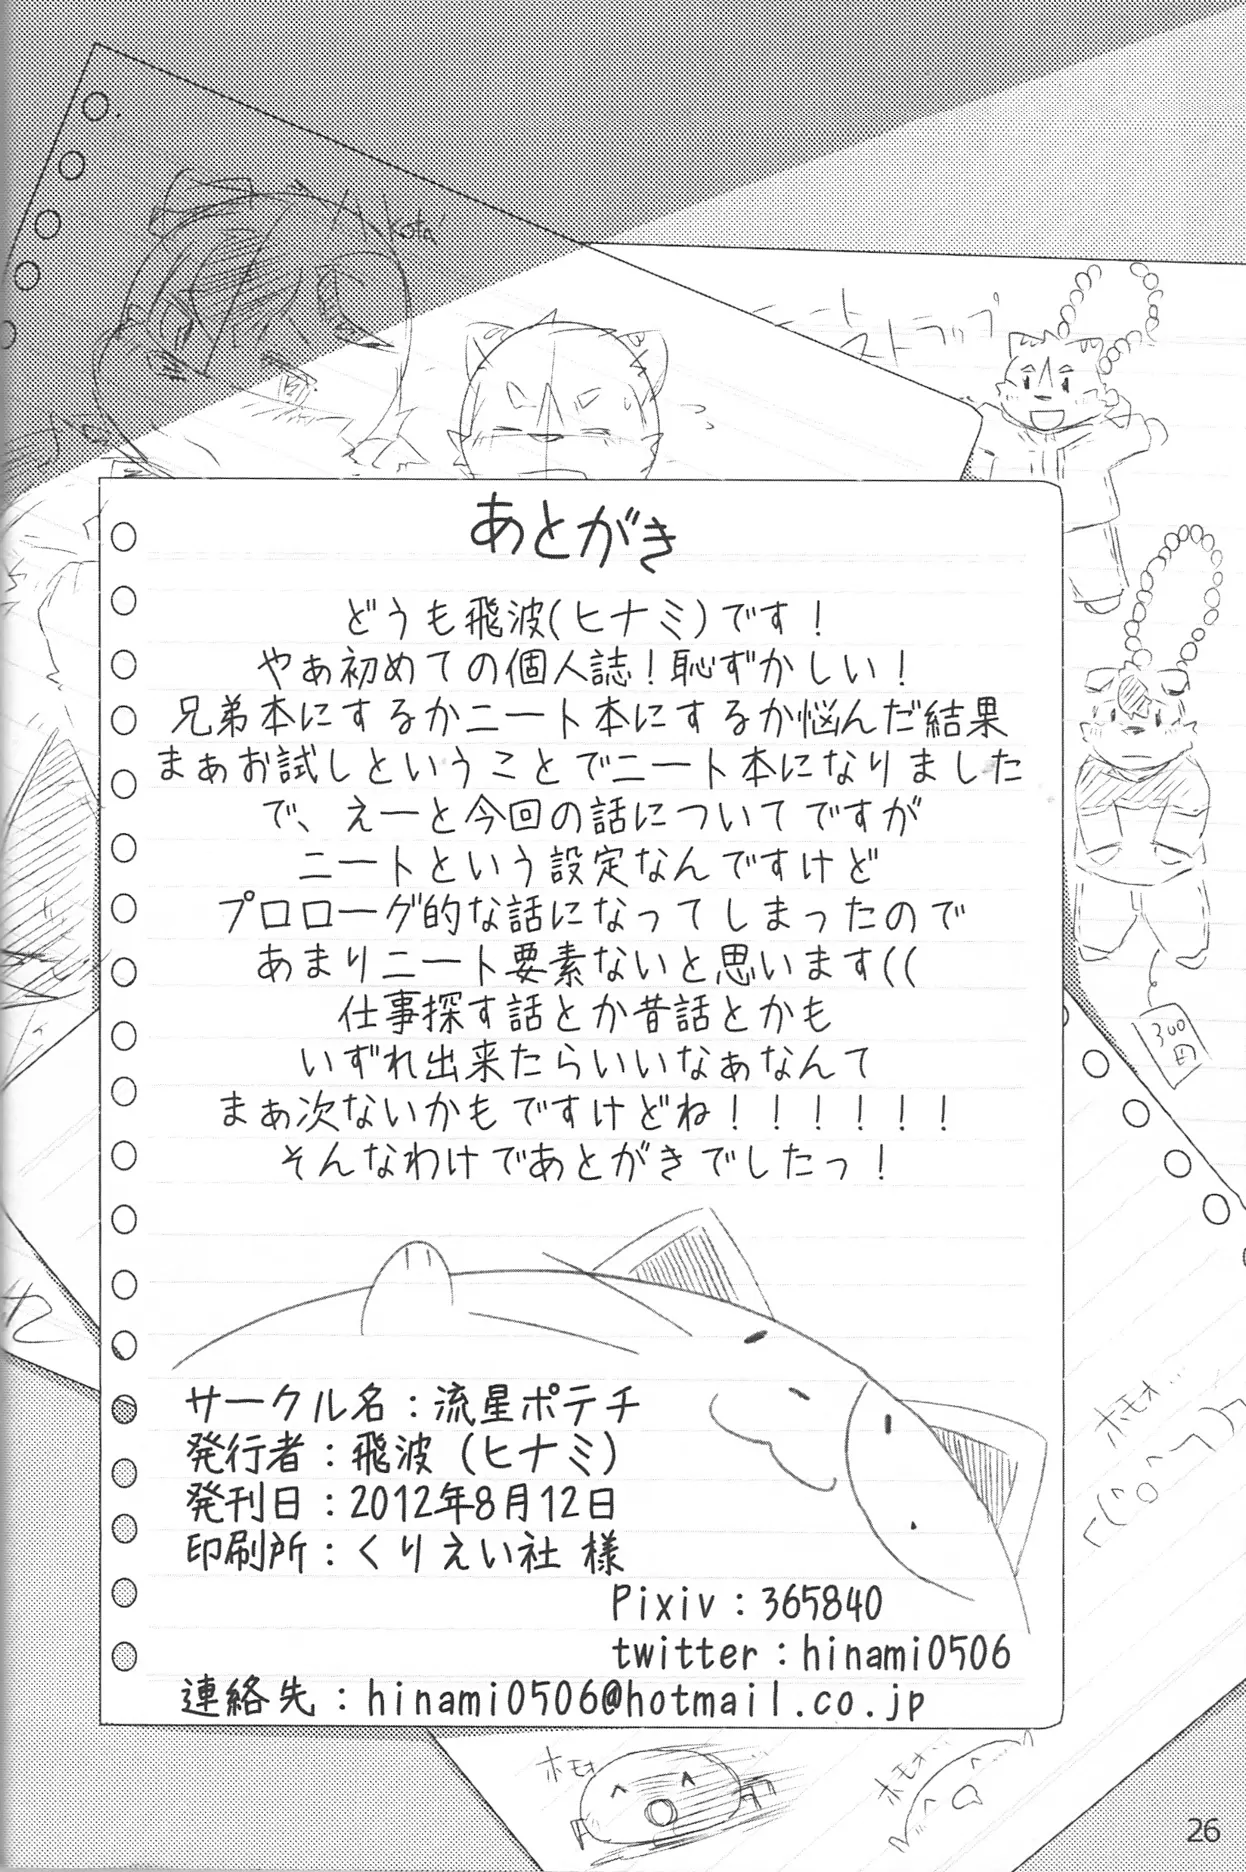 kota
ストラップ
あとがき
どうも飛波(ヒナミ)です！
やぁ初めての個人誌！恥ずかしい！
兄弟本にするかニート本にするか悩んだ結果
まぁお試しということでニート本になりました
で、えーと今回の話についてですが
ニートという設定なんですけど
プロローグ的な話になってしまったので
あまりニート要素ないと思います((
仕事探す話とか昔話とかも
いずれ出来たらいいなぁなんて
まぁ次ないかもですけどね！！！！！！
そんなわけであとがきでしたっ！
300円
サークル名：流星ポテチ
発行者：飛波（ヒナミ）
発刊日：2012年8月12日
印刷所：くりえい社 様
Pixiv：365840
twitter：hinami0506
連絡先：hinami0506@hotmail.co.jp
ホモォ…
ホモォ
ホモォ…
26